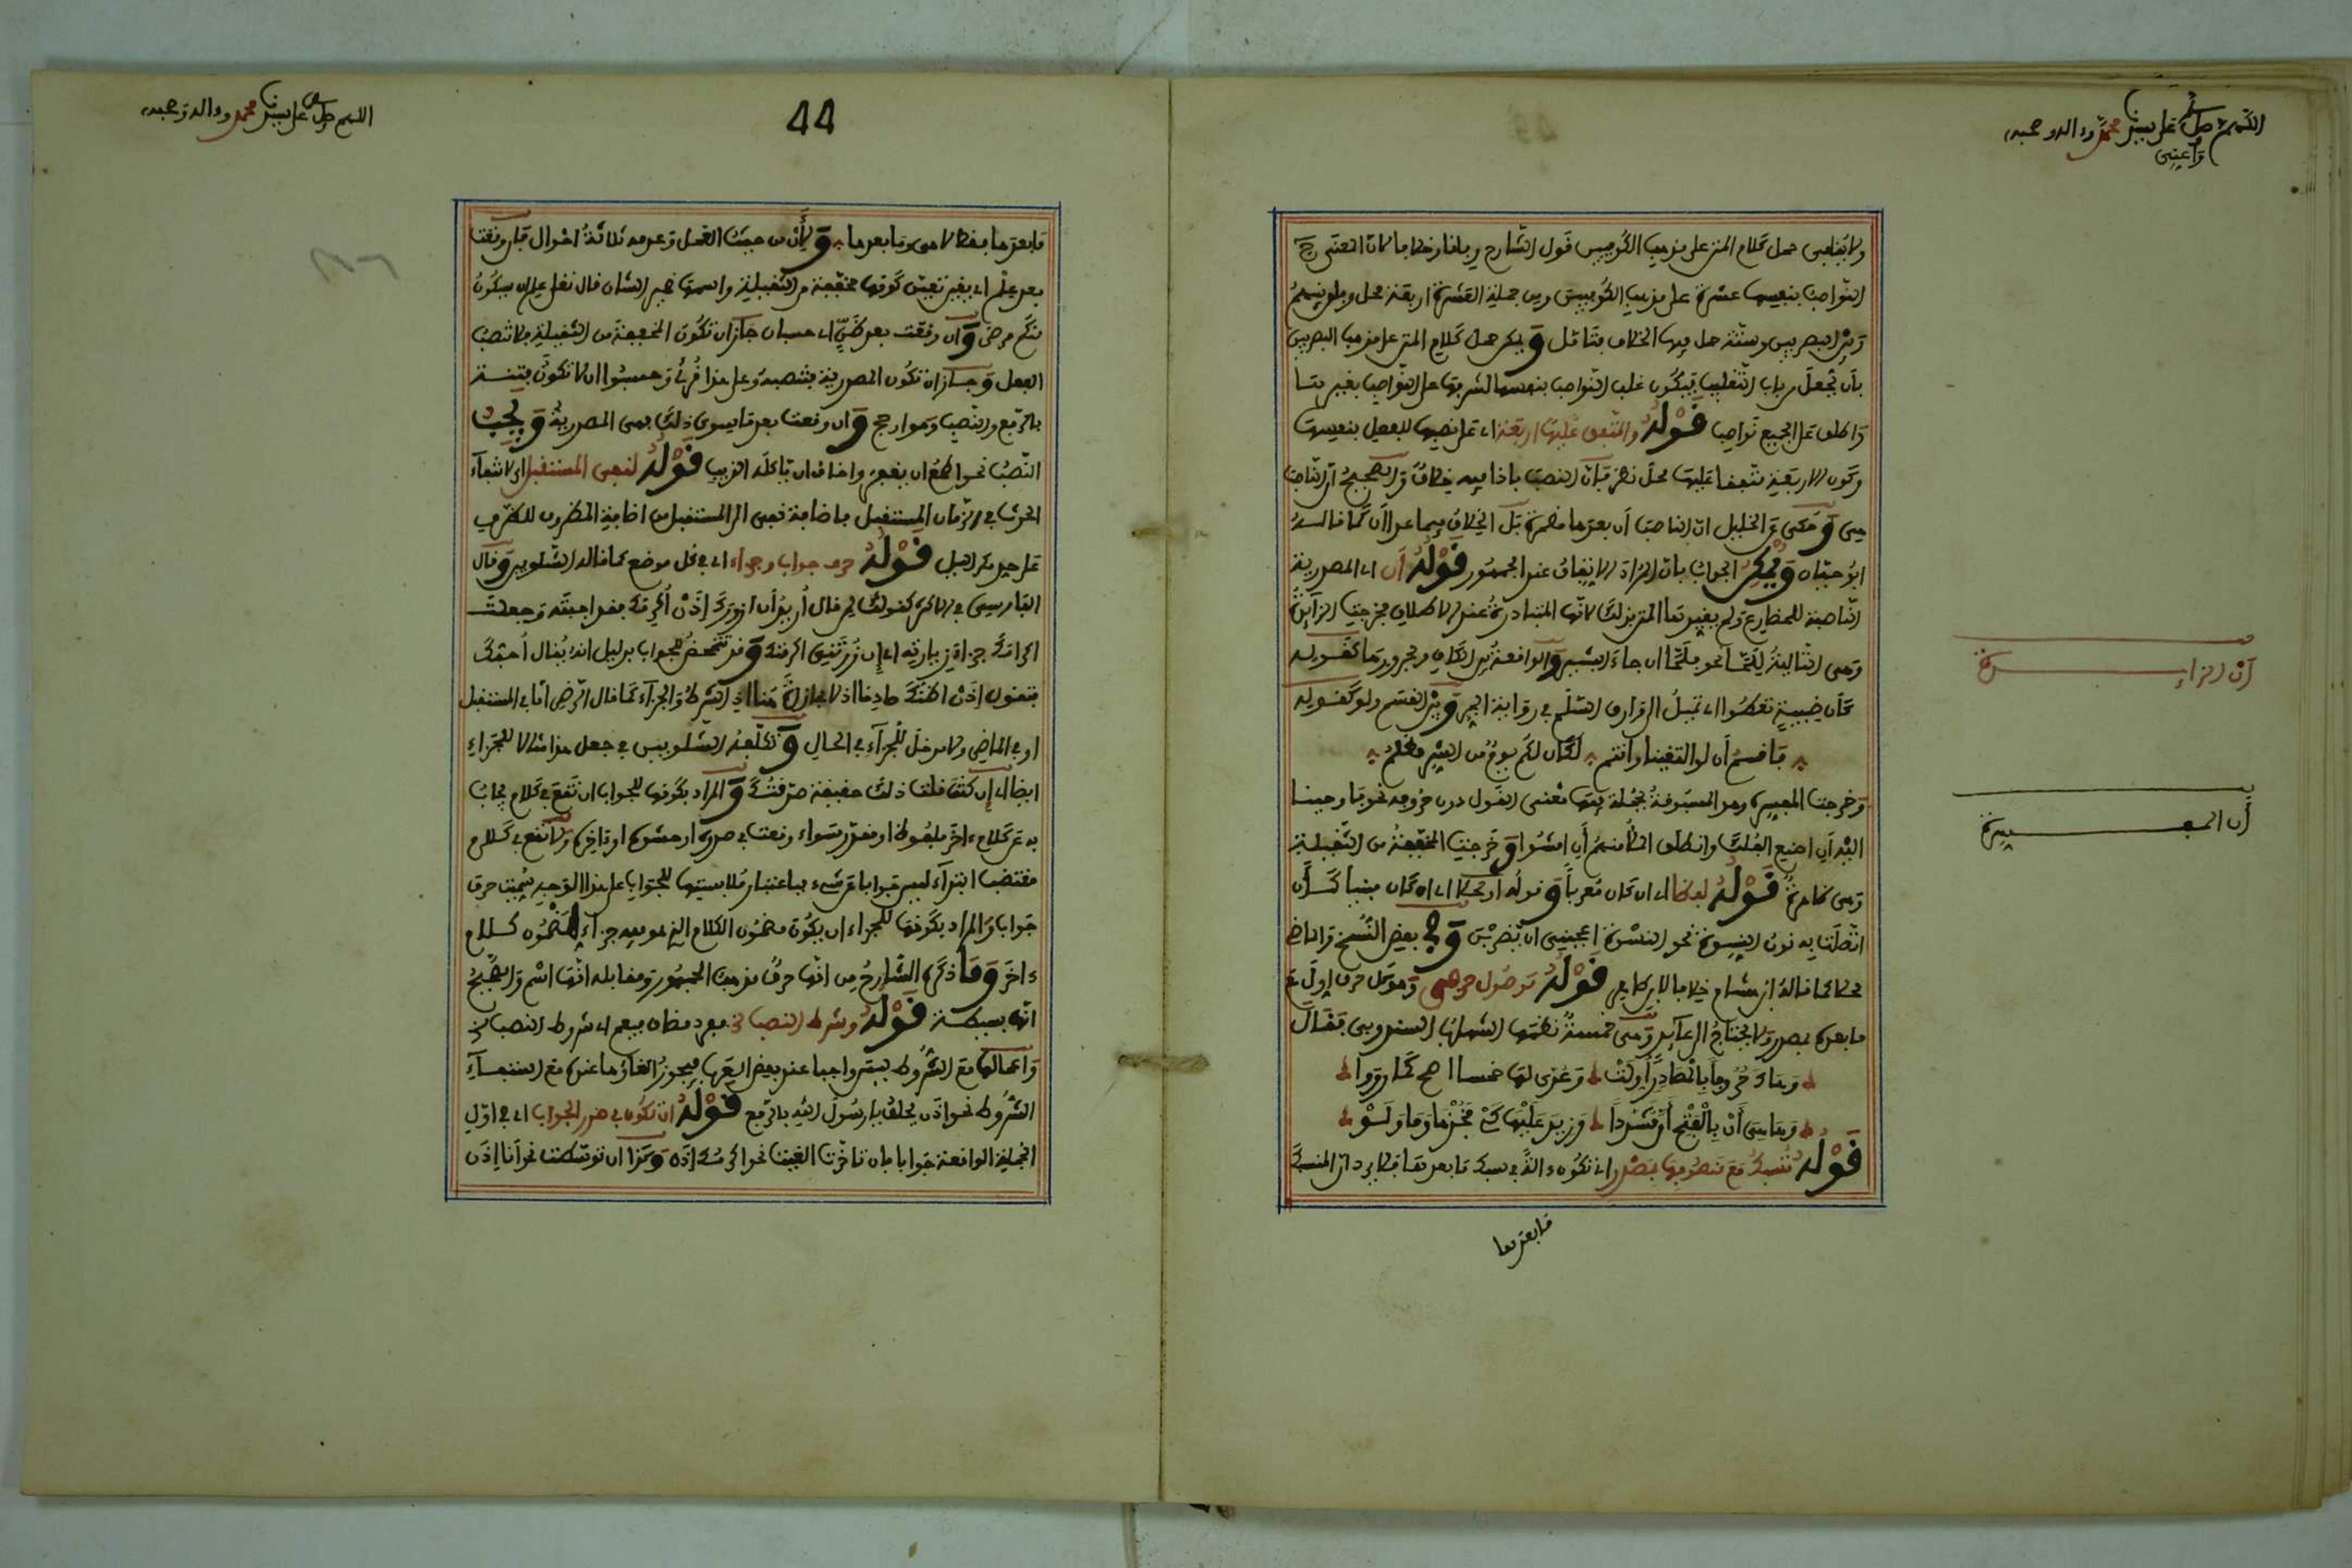 اللهم صل على نبينا محمد وءاله وصحبه
وأعني
ولا ينافي حمل كلام المتن على مذهب الكوفيين قول الشارح
النواصب بنفسها عشرة على مذهب الكوفيين ومن جملة العشرة أربعة محل
البصريين وستة حل فيها الخلاف فتأمل ويمكن حمل كلام المتن على مذهب البصريين
بأن يجعل من باب التغليب فيكون غلب النواصب بنفسها لشرفها على النواصب بغيرها
وأطلق على الجميع نواصب قوله والمتفق عليها أربعة أي على نصبها للفعل بنفسها
وكون الأربعة متفقا عليها محل نظر فإن النصب بإذا فيه خلاف والصحيح أن الناصب
هي وحكي عن الخليل أن الناصب أن بعدها مضمرة بل الخلاف فيما عدا أن كما قاله
أبو حيان ويمكن الجواب بأن المراد الاتفاق عند الجمهور قوله أن أي المصدرية
الناصبة للمضارع ولم يقيدها المتن بذلك لأنها المتبادرة عند الإطلاق فخرجت الزائدة
وهي التالية للما نحو فلما أن جاء البشير والواقعة بين الكاف ومجرورها كقوله
كأن ظبية تعطوا إلى وارق السلم في رواية الجر وبين القسم ولو كقوله
فأقسم أن لو التقينا وأنتم لكان لكم يوم من الشر مظلم
وخرجت المفسرة وهي المسبوقة بجملة فيها معنى القول دون حروفه نحو فأوحينا
إليه أن اصنع الفلك وانطلق الملأ منهم أن امشوا وخرجت المخففة من الثقيلة
وهي ظاهرة قوله لفظا أي إن كان معربا وقوله أو محلا أي إن كان مبنيا كأن
اتصلت به نون النسوة نحو النسوة أعجبني أن تضربن وفي بعض النسخ والماضي
محلا كما قاله ابن هشام خلافا لابن طاهر قوله موصول حرفي وهو كل حرف أول مع
ما بعده بمصدر ولا يحتاج إلى عائد وهي خمسة نظمها الشهاب السندوبي فقال
وهاك حروفا بالمصادر أولت وعدي لها خمسا أصح كما رووا
وها هي أن بالفتح أن مشددا وزيد عليها كي فخذها وما ولو
قوله تسبك مع منصوبها بمصدر أي تكون ءالة في سبك ما بعدها فلا يرد أن المنسبك
ما بعدها
أن الزائدة
أن المفسرة
44
اللهم صل على نبينا محمد وءاله وصحبه
ما بعدها فقط لا هي وما بعدها ولأن من حيث العمل وعدمه ثلاثة أحوال فإن وقعت
بعد علم أي يقين تعين كونها مخففة من الثقيلة واسمها ضمير الشأن قال تعالى علم أن سيكون
منكم مرضى وإن وقعت بعد ظن أي حسبان جاز أن تكون المخففة من الثقيلة فلا تنصب
الفعل وجاز أن تكون المصدرية فتنصبه وعلى هذا قرئ وحسبوا أن لا تكون فتنة
بالرفع والنصب وهو أرجح وإن وقعت بعد ما سوى ذلك فهي المصدرية ويجب
النصب نحو أطمع أن يغفر وأخاف أن يأكله الذيب قوله لنفي المستقبل أي لانتفاء
الحدث في الزمان المستقبل فإضافة نفي إلى المستقبل من إضافة المظروف للظرف
قوله حرف جواب وجزاء أي في كل موضع كما قاله الشلوبين وقال
الفارسي في الأكثر كقولك لمن قال أريد أن أزورك إذن أكرمك فقد أجبته وجعلت
إكرامك جزاء زيارته أي إن زرتني أكرمتك وقد تتمحض للجواب بدليل أنه يقال أحبك
فتقول إذن أظنك صادقا إذ لا مجازاة هنا إذ الشرط والجزاء كما قال الرضي إما في المستقبل
أو في الماضي ولا مدخل للجزاء في الحال وتكلف الشلوبين في جعل هذا مثالا للجزاء
أيضا أي إن كنت قلت ذلك حقيقة صدقتك والمراد بكونها للجواب أن تقع في كلام مجاب
به عن كلام ءاخر ملفوظ أو مقدر سواء وقعت في صدره أو حشوه أو ءاخره ولا تقع في كلام
مقتضب ابتداء ليس جوابا عن شيء فباعتبار ملابستها للجواب على هذا الوجه سميت حرف
جواب والمراد بكونها للجزاء أن يكون مضمون الكلام الذي هو فيه جزاء لمضمون كلام
ءاخر وما ذكره الشارح من أنها حرف مذهب الجمهور ومقابله أنها اسم والصحيح
أنها بسيطة قوله وشرط النصب مفرد مضاف فيعم أي شروط النصب
وإعمالها مع الشروط ليس واجبا عند بعض العرب فيجوز إلغاؤها عنده مع استيفاء
الشروط نحو إذن يحلف يا رسول الله بالرفع قوله أن تكون في صدر الجواب أي في أول
الجملة الواقعة جوابا فإن تأخرت ألغيت نحو أكرمك إذن وكذا إن توسطت نحو أنا إذن